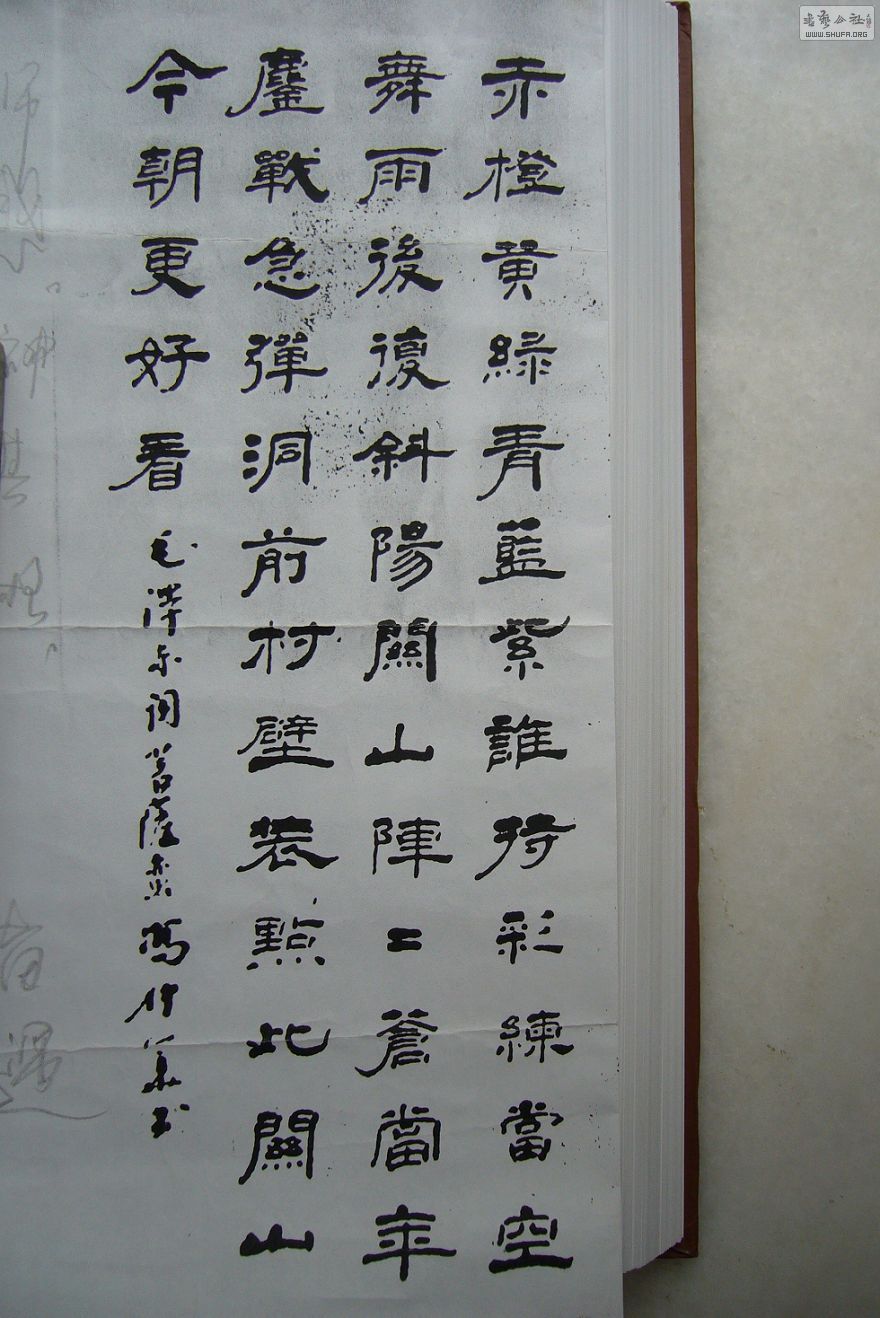 赤橙黃綠青藍紫誰持彩練當空
舞雨後復斜陽關山陣〻蒼當年
鏖戰急彈洞前村壁裝點此關山
今朝更好看
毛澤东词菩薩蛮 馮 书
書藝公社
WWW.SHUFA.ORG